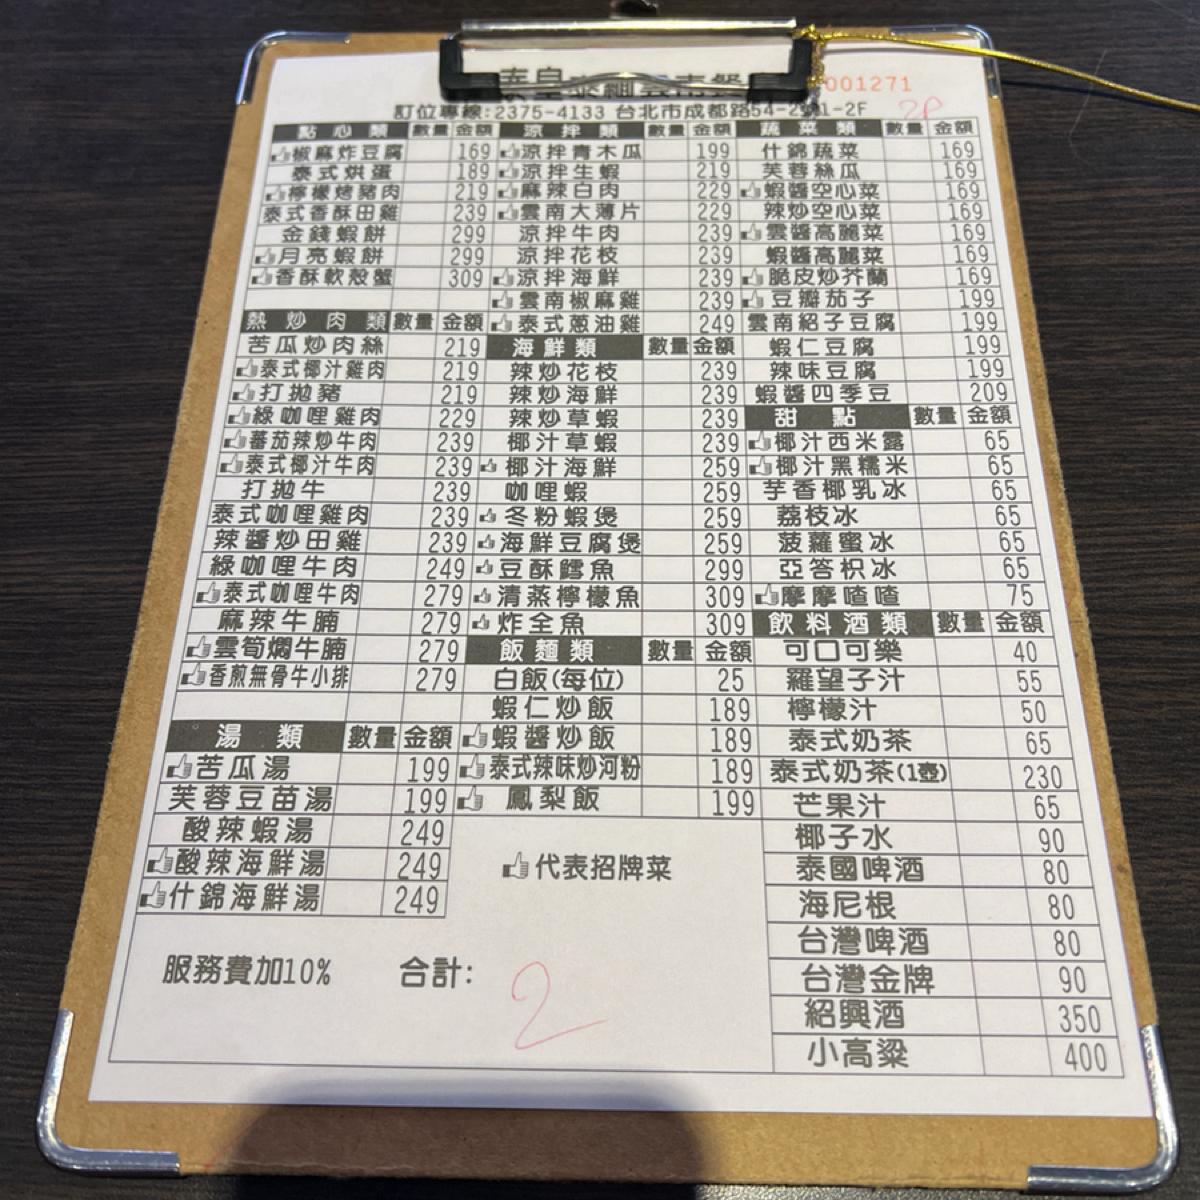 001271
訂位專線:2375-4133 台北市成都路54-2號1-2F
2P
點心類 數量 金額
椒麻炸豆腐 169
泰式烘蛋 189
檸檬烤豬肉 219
泰式香酥田雞 239
金錢蝦餅 299
月亮蝦餅 299
香酥軟殼蟹 309
熱炒肉類 數量 金額
苦瓜炒肉絲 219
泰式椰汁雞肉 219
打拋豬 219
綠咖哩雞肉 229
蕃茄辣炒牛肉 239
泰式椰汁牛肉 239
打拋牛 239
泰式咖哩雞肉 239
辣醬炒田雞 239
綠咖哩牛肉 249
泰式咖哩牛肉 279
麻辣牛腩 279
雲筍燜牛腩 279
香煎無骨牛小排 279
湯類 數量 金額
苦瓜湯 199
芙蓉豆苗湯 199
酸辣蝦湯 249
酸辣海鮮湯 249
什錦海鮮湯 249
涼拌類 數量 金額
涼拌青木瓜 199
涼拌生蝦 219
麻辣白肉 229
雲南大薄片 229
涼拌牛肉 239
涼拌花枝 239
涼拌海鮮 239
雲南椒麻雞 239
泰式蔥油雞 249
海鮮類 數量 金額
辣炒花枝 239
辣炒海鮮 239
辣炒草蝦 239
椰汁草蝦 239
椰汁海鮮 259
咖哩蝦 259
冬粉蝦煲 259
海鮮豆腐煲 259
豆酥鱈魚 299
清蒸檸檬魚 309
炸全魚 309
飯麵類 數量 金額
白飯(每位) 25
蝦仁炒飯 189
蝦醬炒飯 189
泰式辣味炒河粉 189
鳳梨飯 199
代表招牌菜
蔬菜類 數量 金額
什錦蔬菜 169
芙蓉絲瓜 169
蝦醬空心菜 169
辣炒空心菜 169
雲醬高麗菜 169
蝦醬高麗菜 169
脆皮炒芥蘭 169
豆瓣茄子 199
雲南紹子豆腐 199
蝦仁豆腐 199
辣味豆腐 199
蝦醬四季豆 209
甜點 數量 金額
椰汁西米露 65
椰汁黑糯米 65
芋香椰乳冰 65
荔枝冰 65
菠蘿蜜冰 65
亞答枳冰 65
摩摩喳喳 75
飲料酒類 數量 金額
可口可樂 40
羅望子汁 55
檸檬汁 50
泰式奶茶 65
泰式奶茶(1壺) 230
芒果汁 65
椰子水 90
泰國啤酒 80
海尼根 80
台灣啤酒 80
台灣金牌 90
紹興酒 350
小高粱 400
服務費加10% 合計:
2